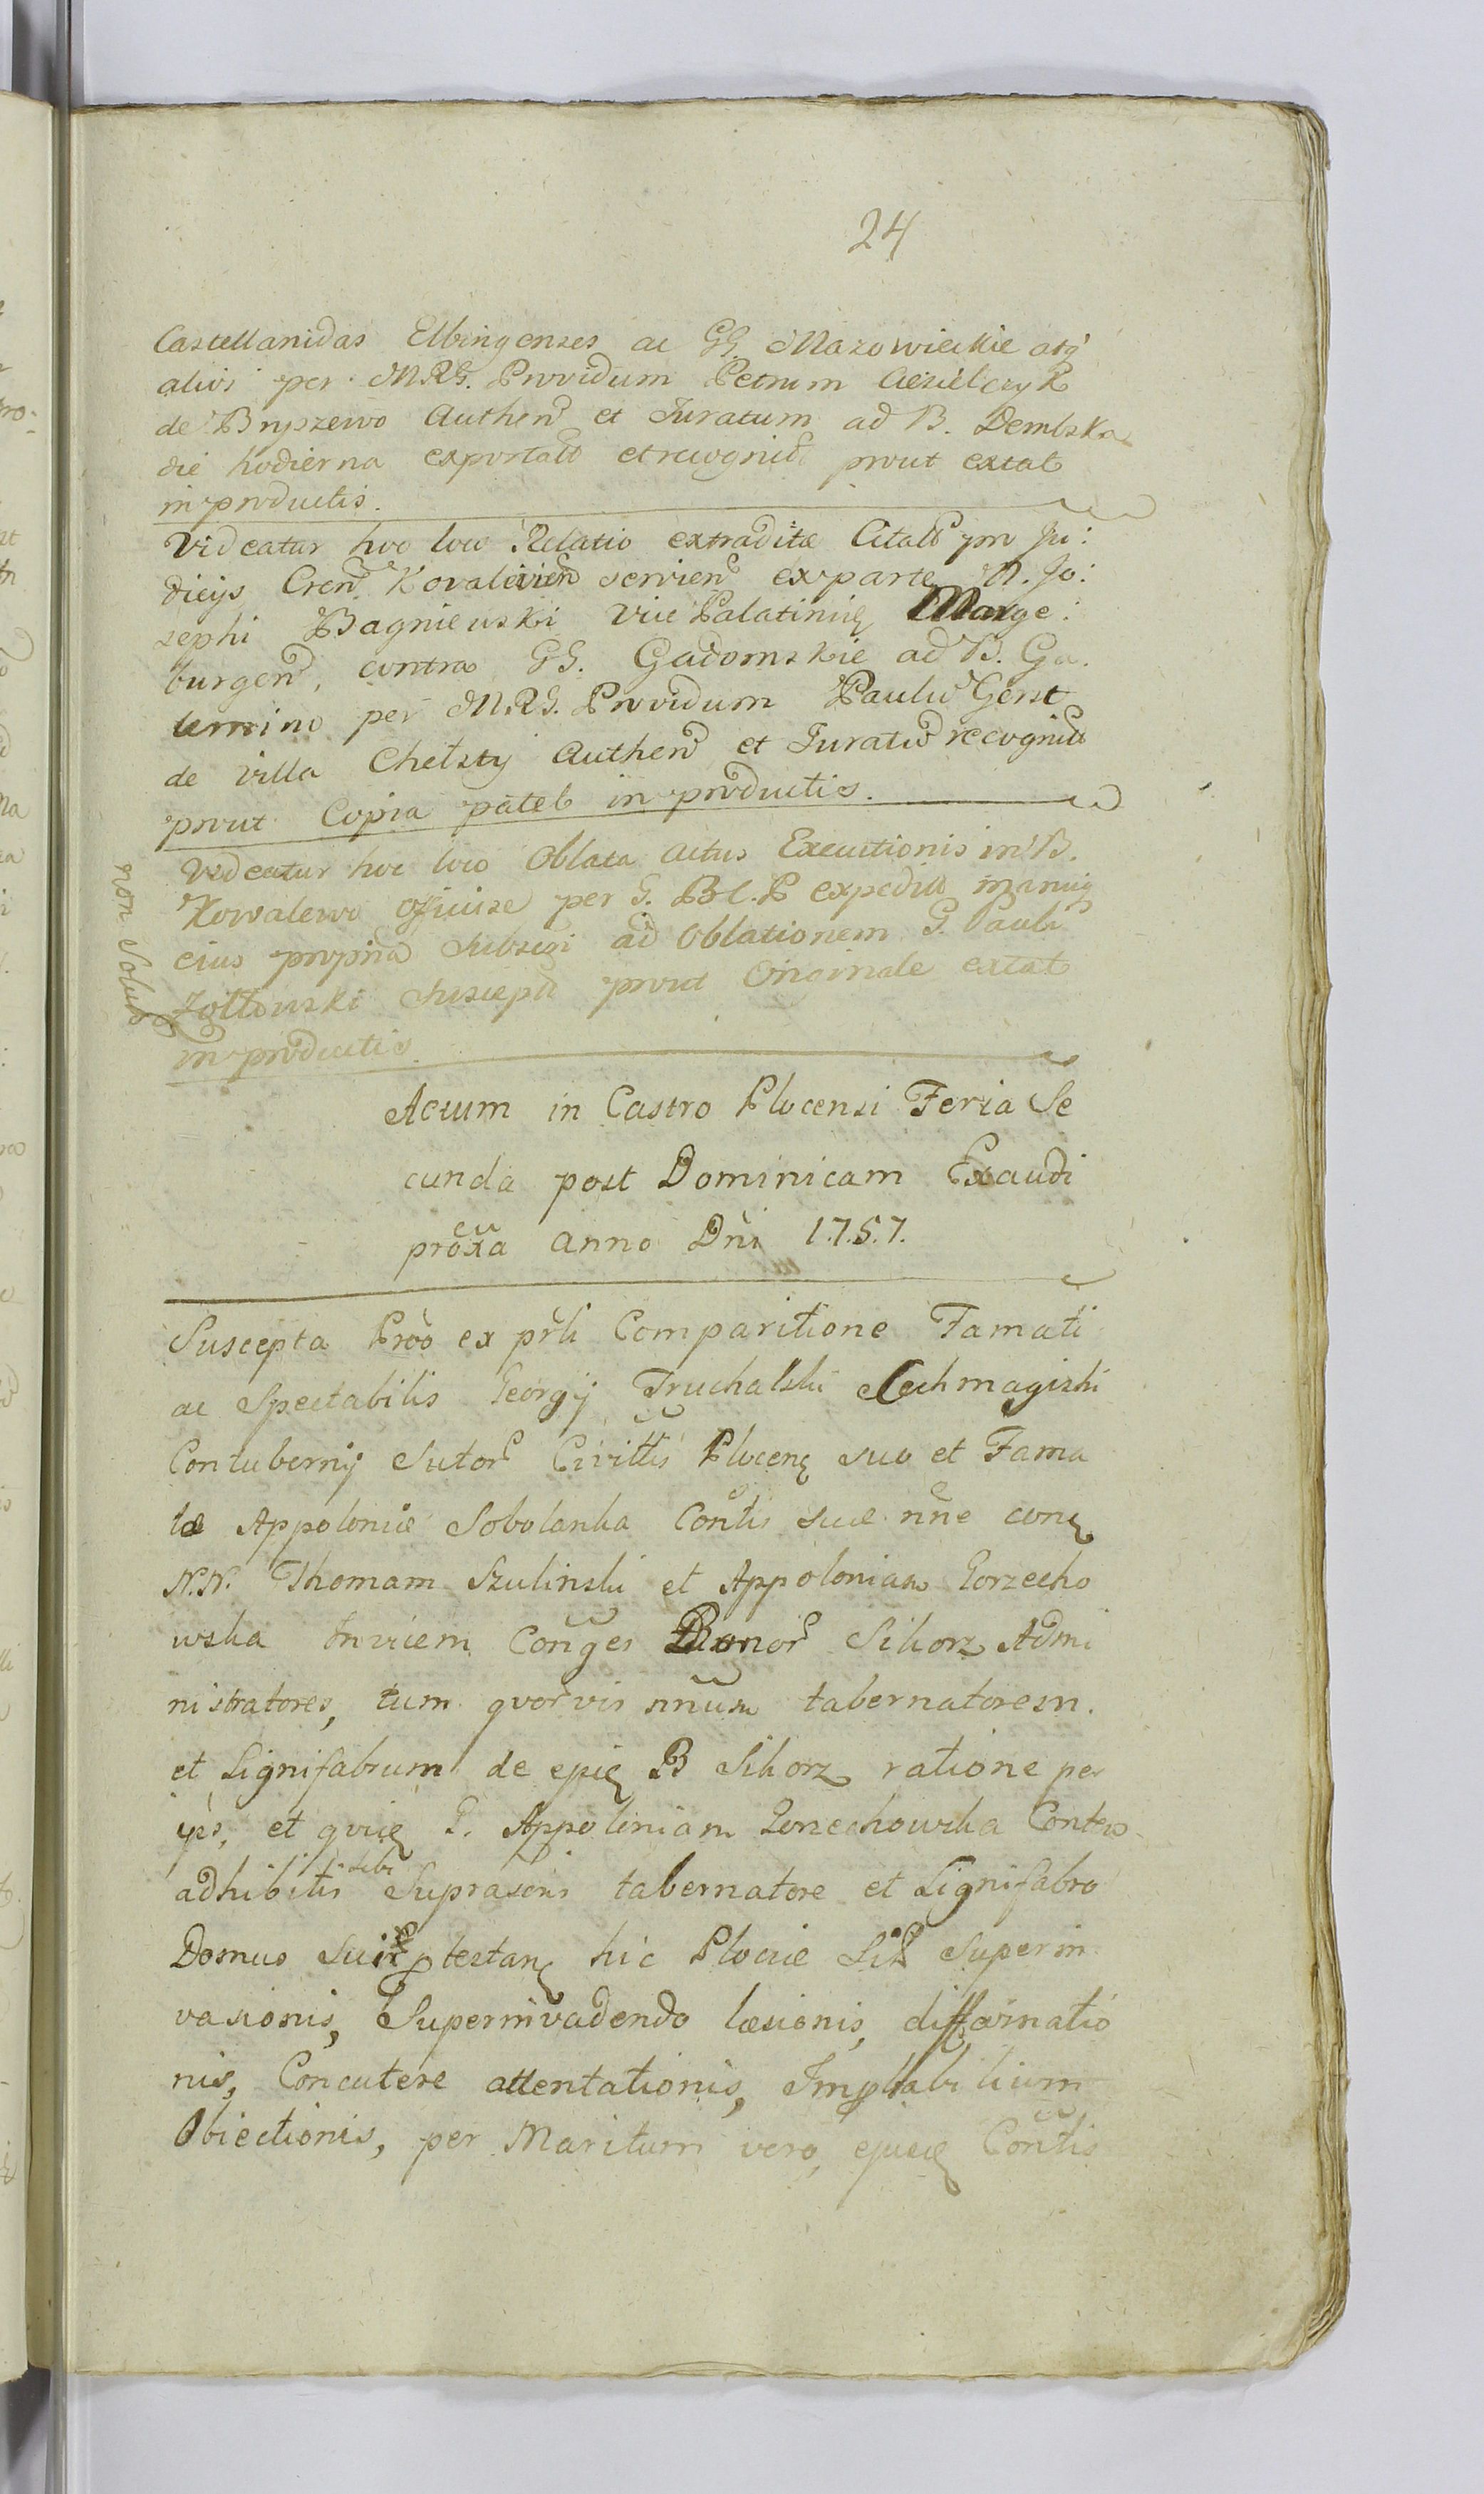 24
Castellanidas Elbingenses ac GG. Mazowieckie atq
alios per MRG. Providum Petrum Ciesielczyk
de Bryszewo Authen et Juratum ad B. Dembska
die hodierna exportat et recognit prout extat
in productis.
Videatur hoc loco Relatio extraditæ Citatt pro Ju:
dicijs Cren Kovalevien servien ex parte M. Jo:
sephi Bagniewski Vice Palatini Marge:
burgen, contra GG. Gadomskie ad B. Ga.
lemino per MRG. Providum Paulu Gerst
de villa Chelsty Authen et Juratu recognitt
prout Copia patet in productis.
Videatur hoc loco Oblata Actus Executionis in B.
Kowalewo Officiose per G. B.C.P expeditt manuq
eius propria Subscri ad Oblationem G. Pauli
Zołtowski Suscepti prout Originale extat
in productis
non Solut
Actum in Castro Plocensi Feria Se
cunda post Dominicam Exaudi
proxa anno Dni 1.7.5.7.
Suscepta Proo ex prli Comparitione Famati
ac Spectabilis Georgij Truchalski Cechmagistri
Contubernij Sutor Civittis Plocen suo et Fama
tæ Appoloniæ Sobolanka Contis suæ nne con
N.N. Thomam Szulinski et Appoloniam Gorzecho
wska invicem Conges Bonor Sikorz Admi
nistratores, tum quorvis nnum tabernatorem.
et Lignifabrum de ejus B Sikorz ratione per
ips, et quie G. Appoloniam Gorzechowska Contro
adhibitis sibi Suprascris tabernatore et Lignifabro
Domus Suir ptestan hic Plociæ Sit Superin
vasionis, Superinvadendo læsionis, diffamatio
nis, Concutere attentationis, Imptabilium
Obiectionis, per Maritum vero, ejus Contis